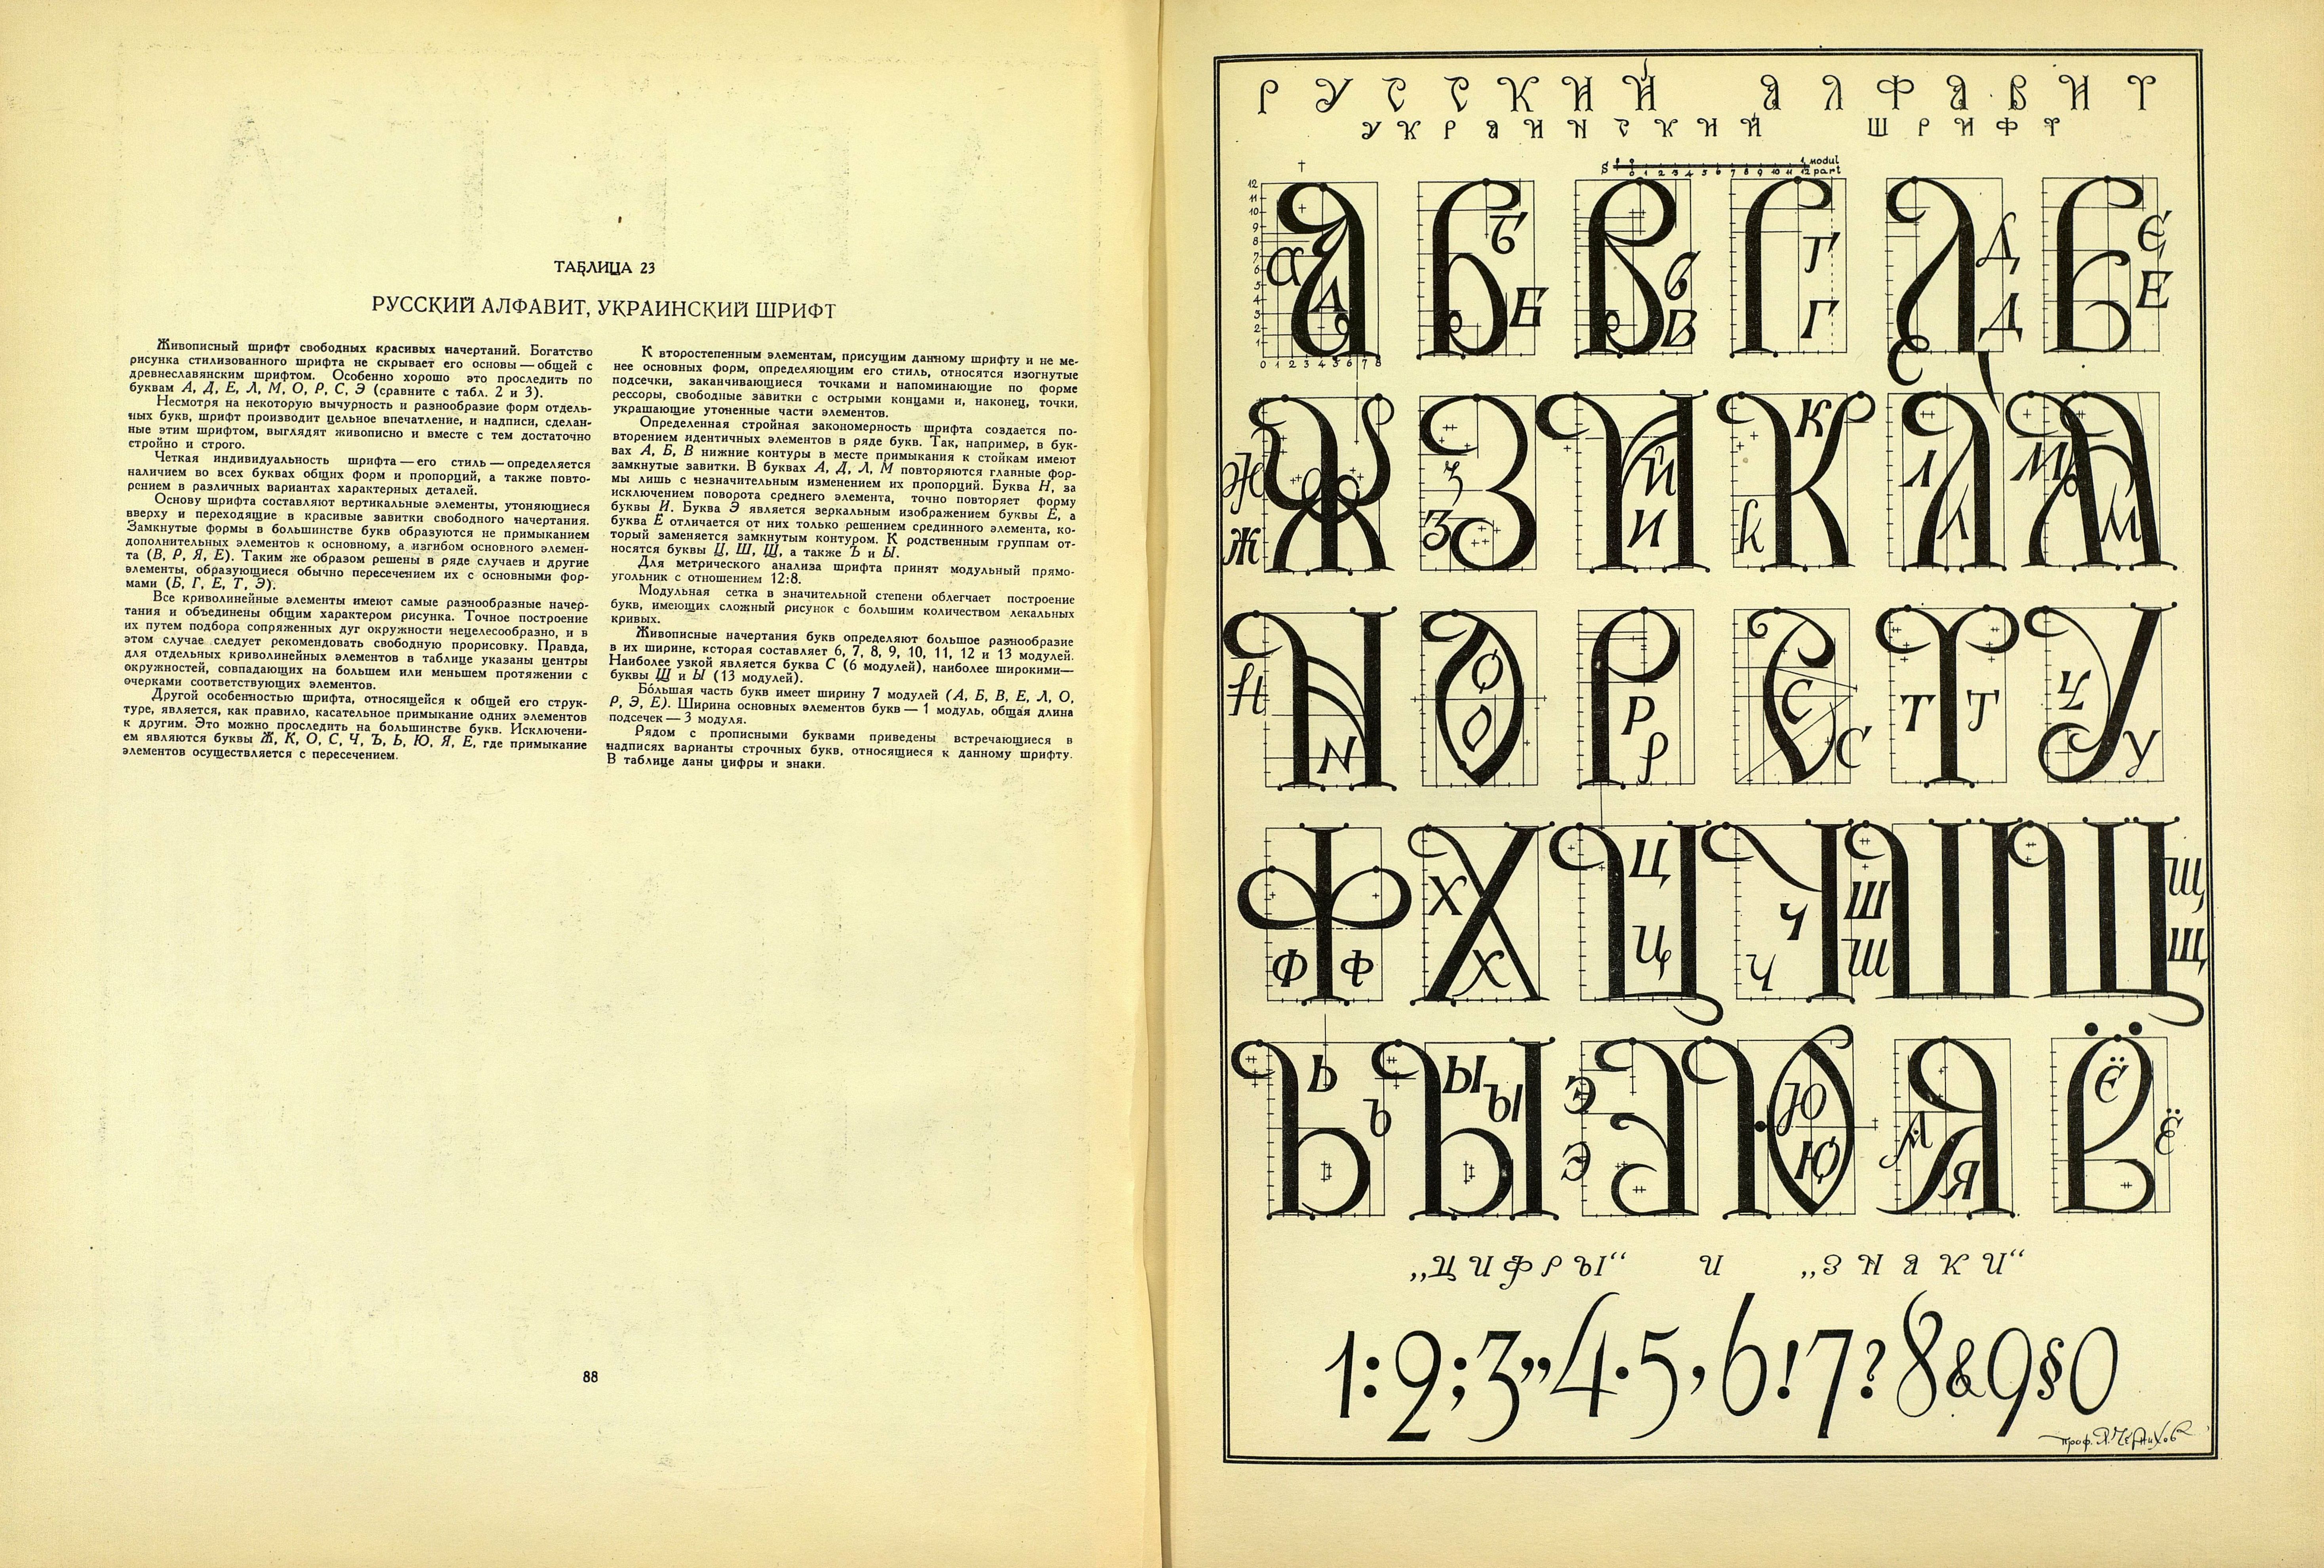 ТАБЛИЦА 23
РУССКИЙ АЛФАВИТ, УКРАИНСКИЙ ШРИФТ
Живописный шрифт свободных красивых начертаний. Богатство
рисунка стилизованного шрифта не скрывает его основы — общей с
древнеславянским шрифтом. Особенно хорошо это проследить по
буквам А, Д, Е, Л, М, О, Р, С, Э (сравните с табл. 2 и 3).
Несмотря на некоторую вычурность и разнообразие форм отдель-
ных букв, шрифт производит цельное впечатление, и надписи, сделан-
ные этим шрифтом, выглядят живописно и вместе с тем достаточно
стройно и строго.
Четкая индивидуальность шрифта — его стиль — определяется
наличием во всех буквах общих форм и пропорций, а также повто-
рением в различных вариантах характерных деталей.
Основу шрифта составляют вертикальные элементы, утоняющиеся
вверху и переходящие в красивые завитки свободного начертания.
Замкнутые формы в большинстве букв образуются не примыканием
дополнительных элементов к основному, а изгибом основного элемен-
та (В, Р, Я, Е). Таким же образом решены в ряде случаев и другие
элементы, образующиеся обычно пересечением их с основными фор-
мами (Б, Г, Е, Т, Э).
Все криволинейные элементы имеют самые разнообразные начер-
тания и объединены общим характером рисунка. Точное построение
их путем подбора сопряженных дуг окружности нецелесообразно, и в
этом случае следует рекомендовать свободную прорисовку. Правда,
для отдельных криволинейных элементов в таблице указаны центры
окружностей, совпадающих на большем или меньшем протяжении с
очерками соответствующих элементов.
Другой особенностью шрифта, относящейся к общей его струк-
туре, является, как правило, касательное примыкание одних элементов
к другим. Это можно проследить на большинстве букв. Исключени-
ем являются буквы Ж, К, О, С, Ч, Ъ, Ь, Ю, Я, Е, где примыкание
элементов осуществляется с пересечением.
К второстепенным элементам, присущим данному шрифту и не ме-
нее основных форм, определяющим его стиль, относятся изогнутые
подсечки, заканчивающиеся точками и напоминающие по форме
рессоры, свободные завитки с острыми концами и, наконец, точки,
украшающие утоненные части элементов.
Определенная стройная закономерность шрифта создается по-
вторением идентичных элементов в ряде букв. Так, например, в бук-
вах А, Б, В нижние контуры в месте примыкания к стойкам имеют
замкнутые завитки. В буквах А, Д, Л, М повторяются главные фор-
мы лишь с незначительным изменением их пропорций. Буква Н, за
исключением поворота среднего элемента, точно повторяет форму
буквы И. Буква Э является зеркальным изображением буквы Е, а
буква Ё отличается от них только решением срединного элемента, ко-
торый заменяется замкнутым контуром. К родственным группам от-
носятся буквы Ц, Ш, Щ, а также Ъ и Ы.
Для метрического анализа шрифта принят модульный прямо-
угольник с отношением 12:8.
Модульная сетка в значительной степени облегчает построение
букв, имеющих сложный рисунок с большим количеством лекальных
кривых.
Живописные начертания букв определяют большое разнообразие
в их ширине, которая составляет 6, 7, 8, 9, 10, 11, 12 и 13 модулей.
Наиболее узкой является буква С (6 модулей), наиболее широкими—
буквы Щ и Ы (13 модулей).
Бо́льшая часть букв имеет ширину 7 модулей (А, Б, В, Е, Л, О,
Р, Э, Е). Ширина основных элементов букв — 1 модуль, общая длина
подсечек — 3 модуля.
Рядом с прописными буквами приведены встречающиеся в
надписях варианты строчных букв, относящиеся к данному шрифту.
В таблице даны цифры и знаки.
88
РУССКИЙ АЛФАВИТ
УКРАИНСКИЙ ШРИФТ
S 0 1 2 3 4 5 6 7 8 9 10 11 12 modul part
12 11 10 9 8 7 6 5 4 3 2 1
А Б В Г Д Е
0 1 2 3 4 5 6 7 8
Ж З И К Л М
Н О Р С Т У
Ф Х Ц Ч Ш Щ
Ь Ы Э Ю Я Ё
„ЦИФРЫ“ и „ЗНАКИ“
1:2;3”4·5,6!7?8&9§0
проф. Я. Чернихов